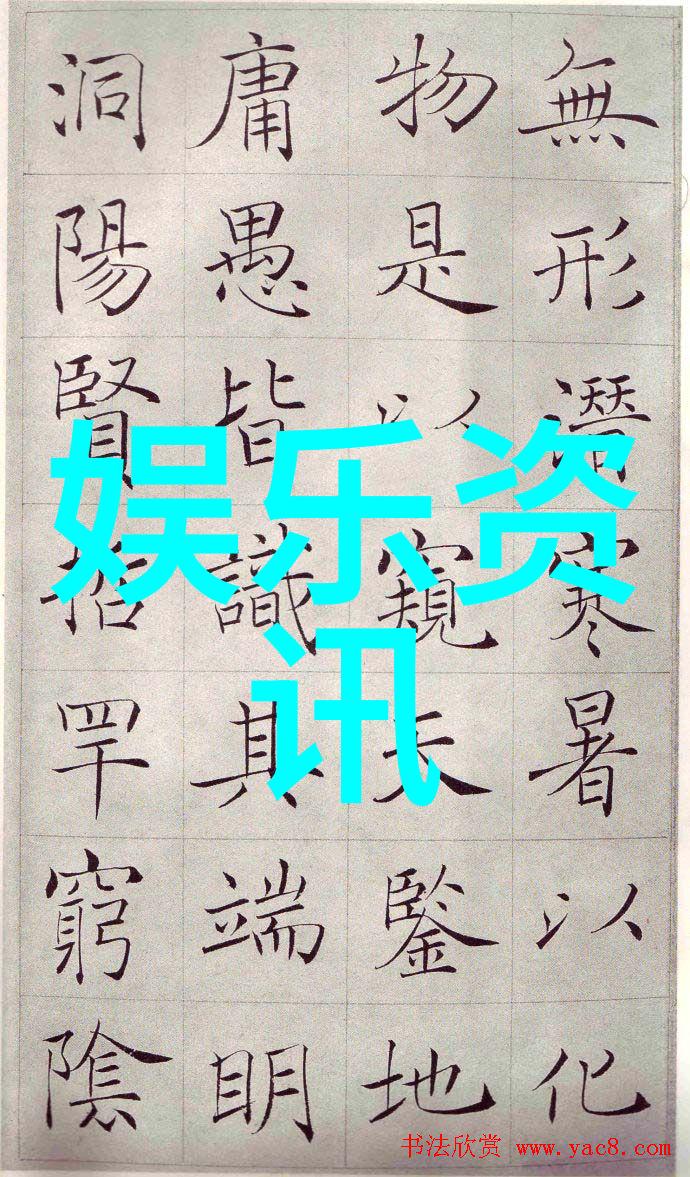 無形潛寒暑以化
物是以窺天鑒地
庸愚皆識其端明
洞陽賢哲罕窮陰
娱乐资
讯
书法欣赏 www.yac8.com